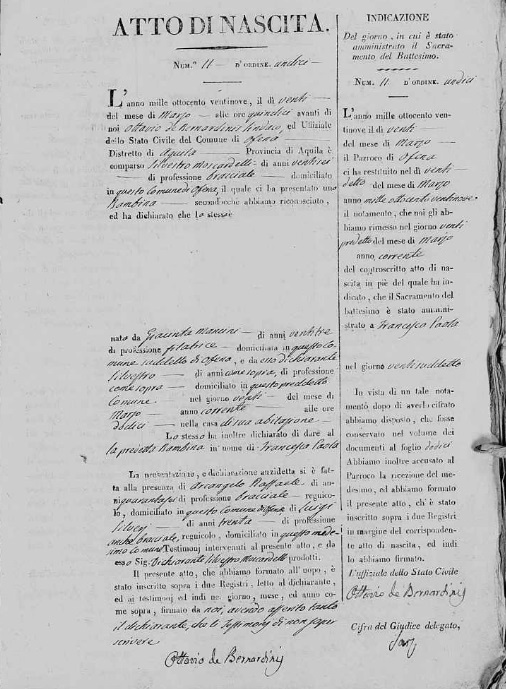 ATTO DI NASCITA.
Num.º 11 — d'ordine undici —
L'anno mille ottocento ventinove, il dì venti —
del mese di Marzo — alle ore quindici avanti di
noi Ottavio de Bernardinis Sindaco, ed Uffiziale
dello Stato Civile del Comune di Ofena
Distretto di Aquila — Provincia di Aquila è
comparso Silvestro Moscardelli di anni ventisei
— di professione bracciale — domiciliato
in questo Comune di Ofena, il quale ci ha presentato una
Bambina — secondocchè abbiamo riconosciuto,
ed ha dichiarato che lo stesso
nato da Giacinta Mancini — di anni ventitre
di professione filatrice — domiciliata in questo Co-
mune suddetto di Ofena, e da esso dichiarante
Silvestro — di anni come sopra, di professione
come sopra — domiciliato in questo predetto
Comune. nel giorno venti — del mese di
Marzo anno corrente — alle ore
dodici — nella casa di sua abitazione —
Lo stesso ha inoltre dichiarato di dare al
la predetta Bambina il nome di Francesca Paola
La presentazione, e dichiarazione anzidetta si è fat-
ta alla presenza di Arcangelo Raffaele di an-
ni quarantasei di professione bracciale — regnico-
lo, domiciliato in questo Comune di Ofena, di Luigi
Silvej — di anni trenta — di professione
anche bracciale, regnicolo, domiciliato in questo mede-
simo Comune Testimonj intervenuti al presente atto, e da
esso Sig. Dichiarante Silvestro Moscardelli prodotti.
Il presente atto, che abbiamo formato all'uopo, è
stato inscritto sopra i due Registri, letto al dichiarante,
ed ai testimonj ed indi nel giorno, mese, ed anno co-
me sopra, firmato da noi, avendo asserito tanto
il dichiarante, che li Testimonj di non saper
scrivere
Ottavio de Bernardinis
INDICAZIONE
Del giorno, in cui è stato
amministrato il Sacra-
mento del Battesimo.
Num. 11 d'ordine undici
L'anno mille ottocento ven-
tinove il dì venti
del mese di Marzo —
il Parroco di Ofena
ci ha restituito nel dì venti
detto del mese di Marzo
anno mille ottocento ventinove
il notamento, che noi gli ab-
biamo rimesso nel giorno venti
predetto del mese di Marzo
anno corrente
del controscritto atto di na-
scita in piè del quale ha in-
dicato, che il Sacramento del
battesimo è stato ammini-
strato a Francesca Paola
nel giorno venti suddetto
In vista di un tale nota-
mento dopo di averlo cifrato
abbiamo disposto, che fosse
conservato nel volume dei
documenti al foglio dodici
Abbiamo inoltre accusato al
Parroco la ricezione del me-
desimo, ed abbiamo formato
il presente atto, ch'è stato
inscritto sopra i due Registri
in margine del corrisponden-
te atto di nascita, ed indi
lo abbiamo firmato.
L'uffiziale dello Stato Civile
Ottavio de Bernardinis
Cifra del Giudice delegato,